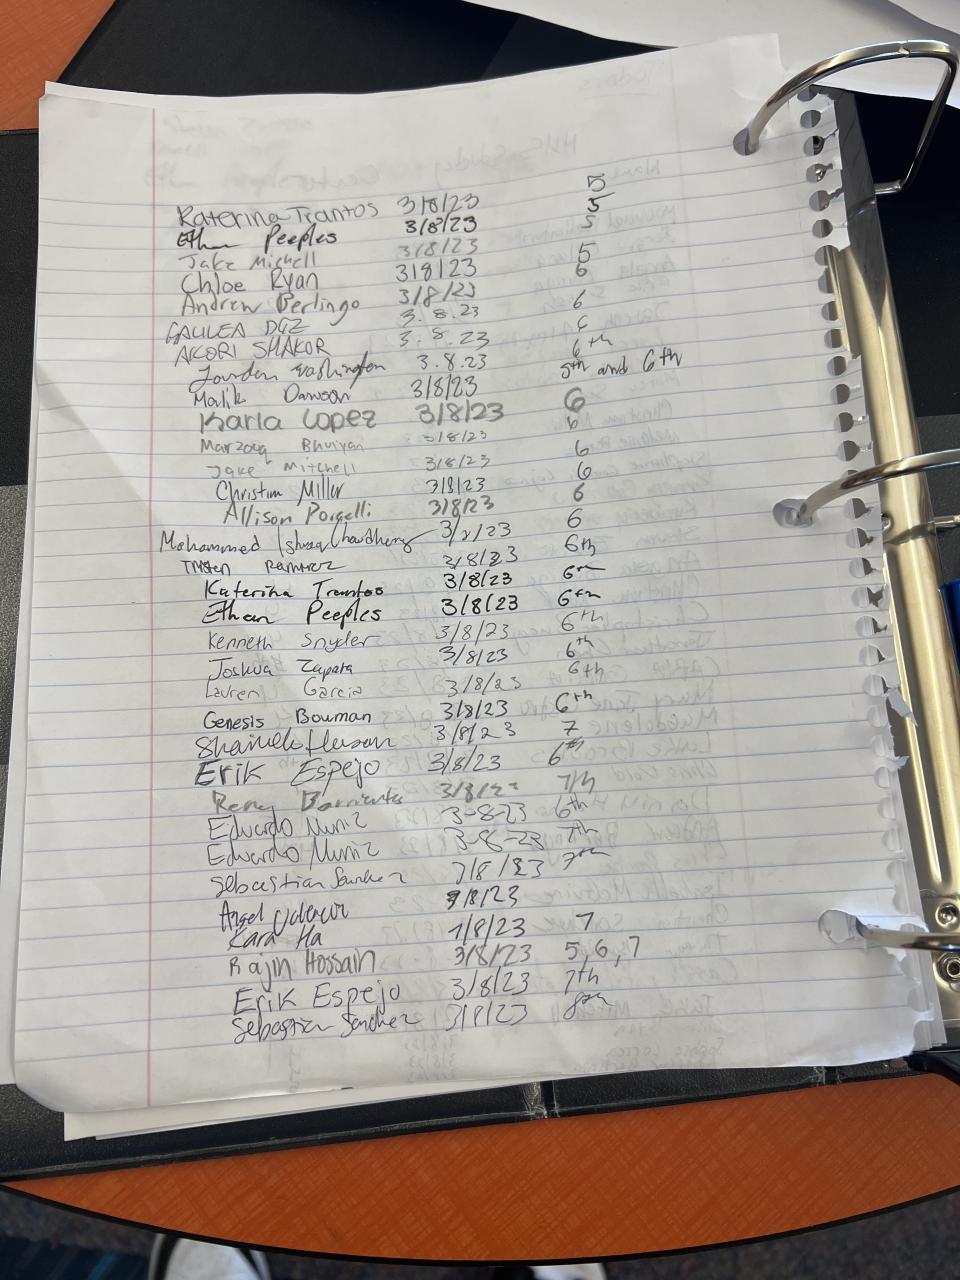 Katerina Trantos 3/8/23 5
Ethan Peeples 3/8/23 5
Jake Michell 3/8/23 5
Chloe Ryan 3/8/23 5
Andrew Berlingo 3/8/23 6
GALILEA DGZ 3.8.23 6
AKORI SHAKOR 3.8.23 6
Jourden Washington 3.8.23 6th
Malik Dawson 3/8/23 5th and 6th
Karla Lopez 3/8/23 6
Marzoog Bhuiyan 3/8/23 6
Jake Mitchell 3/8/23 6
Christian Miller 3/8/23 6
Allison Porcelli 3/8/23 6
Mohammed Chowdhury 3/8/23 6
Tristen Ramirez 3/8/23 6th
Katerina Trantos 3/8/23 6th
Ethan Peeples 3/8/23 6th
Kenneth Snyder 3/8/23 6th
Joshua Zapata 3/8/23 6th
Lauren Garcia 3/8/23 6th
Genesis Bowman 3/8/23 6th
3/8/23 7
Erik Espejo 3/8/23 6th
Barrientos 3/8/23
Edwardo Muniz 3-8-23 6th
Edwardo Muniz 3-8-23 7th
Sebastian Sanchez 3/8/23 7th
Angel 3/8/23
Kara Ha 3/8/23 7
Rajin Hossain 3/8/23 5, 6, 7
Erik Espejo 3/8/23 7th
Sebastian Sanchez 3/8/23 8th